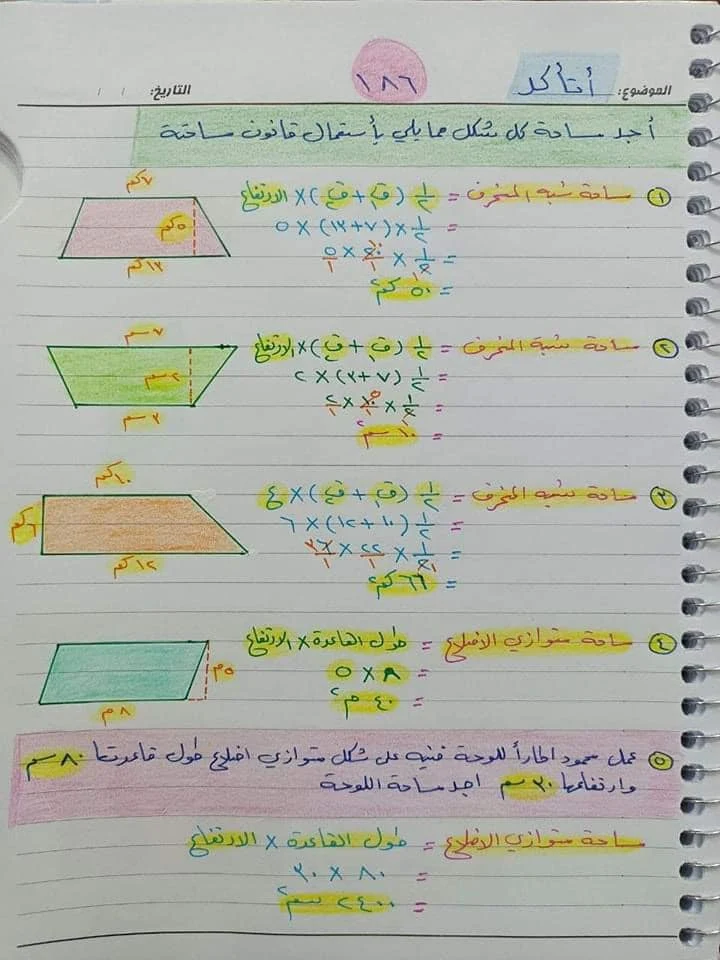 الموضوع: أتأكد
١٨٦
التاريخ: / /
أجد مساحة كل شكل مما يلي بأستعمال قانون مساحتة
١ مساحة شبه المنحرف = ١/٢ (ق١ + ق٢) × الارتفاع
= ١/٢ × (٧+١٣) × ٥
= ١/٢ × ٢٠/١ × ٥/١
= ٥٠ كم٢
٧ كم
٥ كم
١٣ كم
٢ مساحة شبة المنحرف = ١/٢ (ق١ + ق٢) × الارتفاع
= ١/٢ (٧+٣) × ٢
= ١/٢ × ١٠/١ × ٢/١
= ١٠ سم٢
٧ سم
٢ سم
٣ سم
٣ مساحة شبه المنحرف = ١/٢ (ق١ + ق٢) × ع
= ١/٢ (١٠+١٢) × ٦
= ١/٢ × ٢٢/١ ×
= ٦٦ كم٢
١٠ كم
٦ كم
١٢ كم
٤ مساحة متوازي الاضلاع = طول القاعدة × الارتفاع
= ٨ × ٥
= ٤٠ م٢
٥ م
٨ م
٥ عمل محمود اطاراً للوحة فنيه على شكل متوازي اضلاع طول قاعدتها ٨٠ سم
وارتفاعها ٣٠ سم اجد مساحة اللوحة
مساحة متوازي الاضلاع = طول القاعدة × الارتفاع
= ٨٠ × ٣٠
= ٢٤٠٠ سم٢